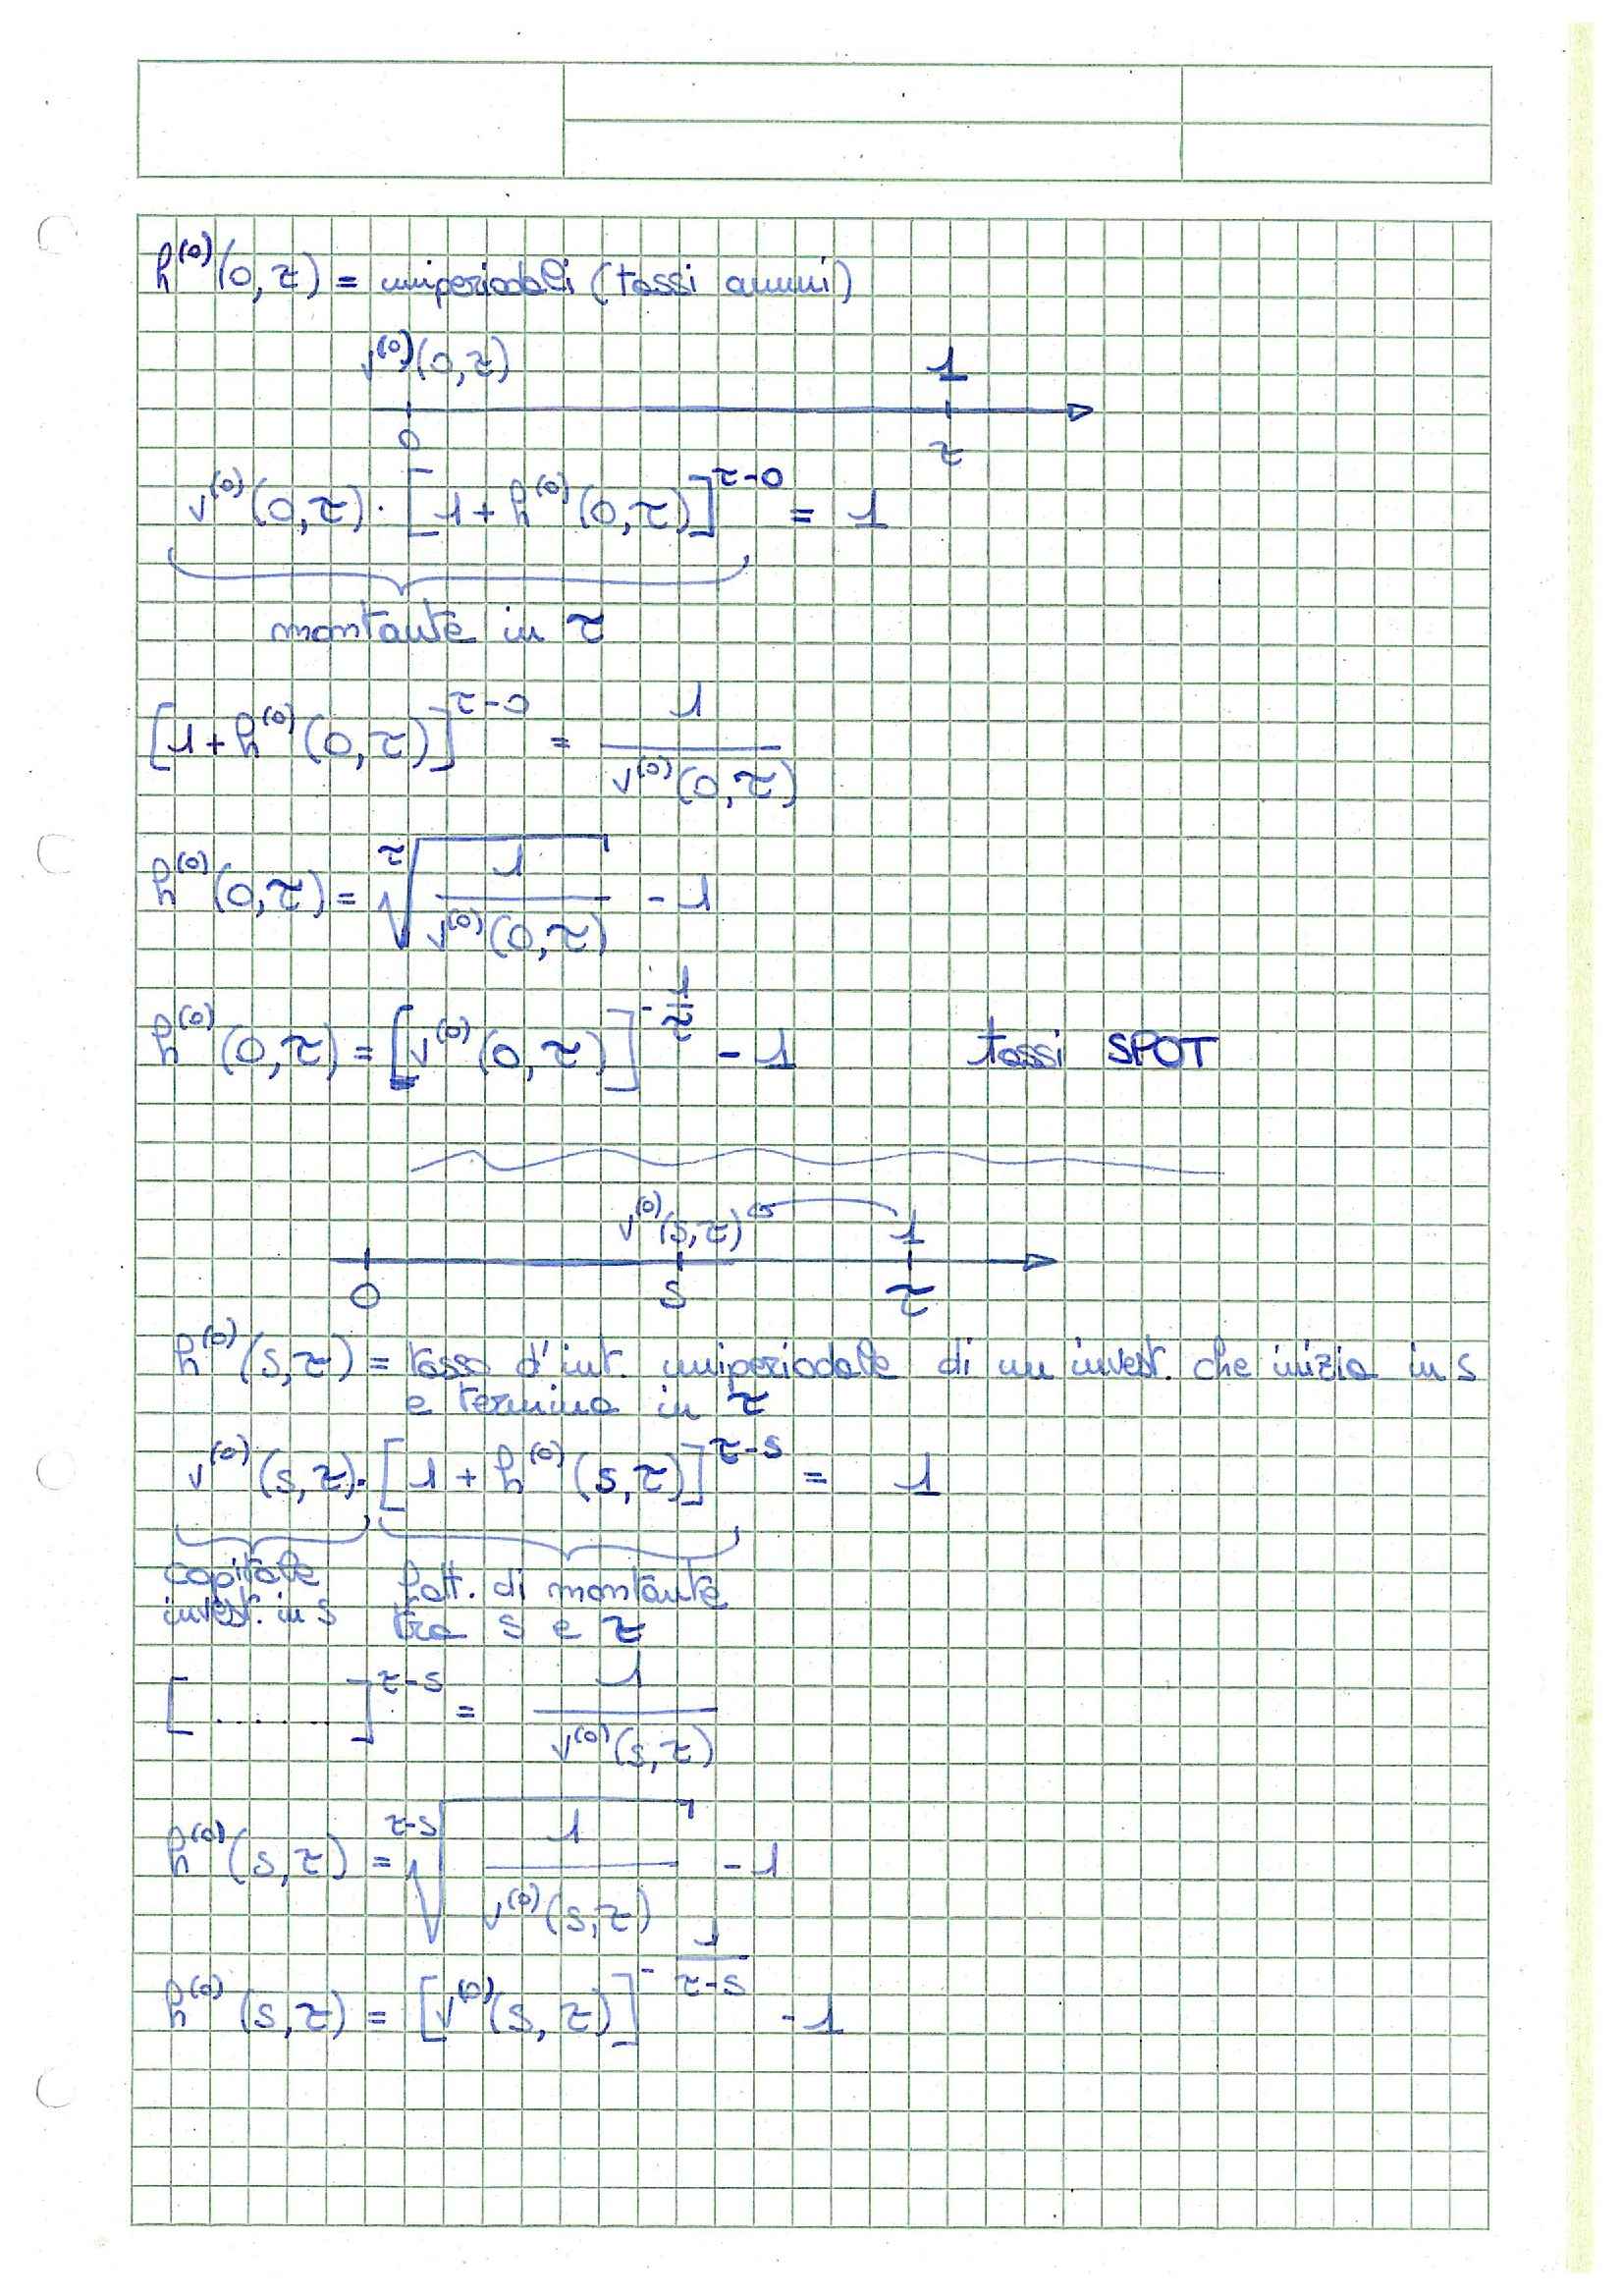 h⁽⁰⁾(0,τ) = uniperiodali (tassi annui)
v⁽⁰⁾(0,τ) 1
0 τ
v⁽⁰⁾(0,τ) · [1 + h⁽⁰⁾(0,τ)]^{τ-0} = 1
montante in τ
[1 + h⁽⁰⁾(0,τ)]^{τ-0} = 1 / v⁽⁰⁾(0,τ)
h⁽⁰⁾(0,τ) = ^τ√(1 / v⁽⁰⁾(0,τ)) - 1
h⁽⁰⁾(0,τ) = [v⁽⁰⁾(0,τ)]^{-1/τ} - 1 tassi SPOT
v⁽⁰⁾(s,τ) 1
0 s τ
h⁽⁰⁾(s,τ) = tasso d'int. uniperiodale di un invest. che inizia in s
e termina in τ
v⁽⁰⁾(s,τ) · [1 + h⁽⁰⁾(s,τ)]^{τ-s} = 1
capitale
invest. in s
fatt. di montante
tra s e τ
[.......]^{τ-s} = 1 / v⁽⁰⁾(s,τ)
h⁽⁰⁾(s,τ) = ^{τ-s}√(1 / v⁽⁰⁾(s,τ)) - 1
h⁽⁰⁾(s,τ) = [v⁽⁰⁾(s,τ)]^{-1/(τ-s)} - 1